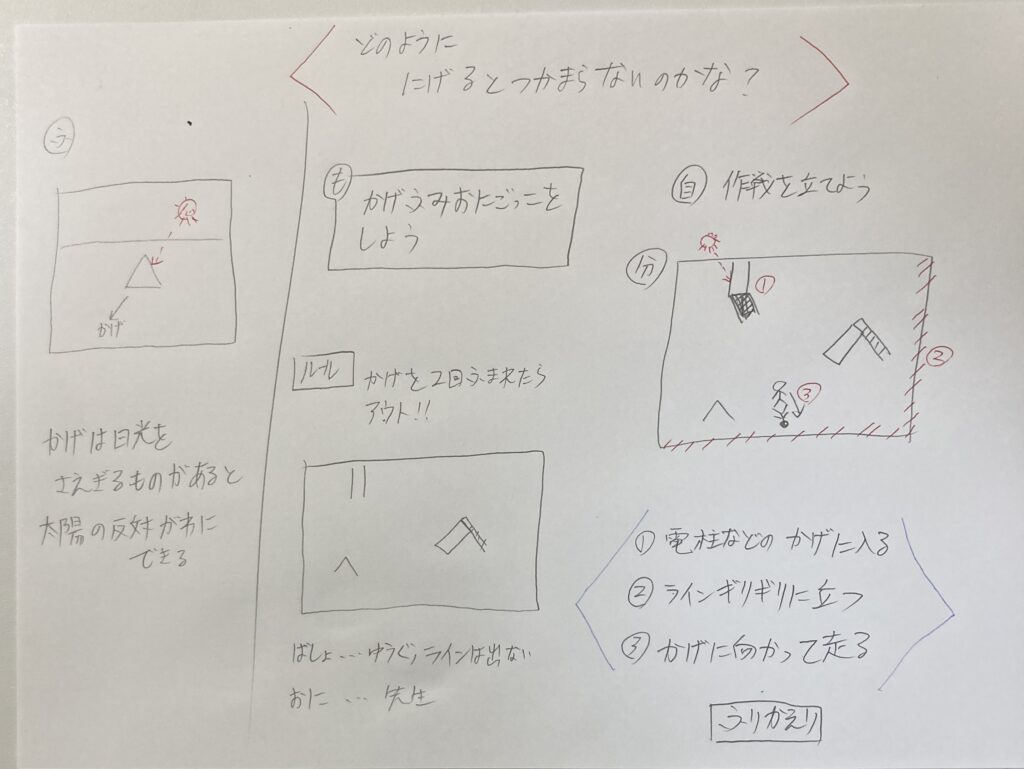 どのように
にげるとつかまらないのかな?
かげ
かげは日光を
さえぎるものがあると
太陽の反対がわに
できる
も
かげふみおにごっこを
しよう
ルール
かげを2回ふまれたら
アウト!!
ばしょ…ゆうぐ,ラインは出ない
おに…先生
自 作戦を立てよう
分
①
②
③
① 電柱などのかげに入る
② ラインギリギリに立つ
③ かげに向かって走る
ふりかえり